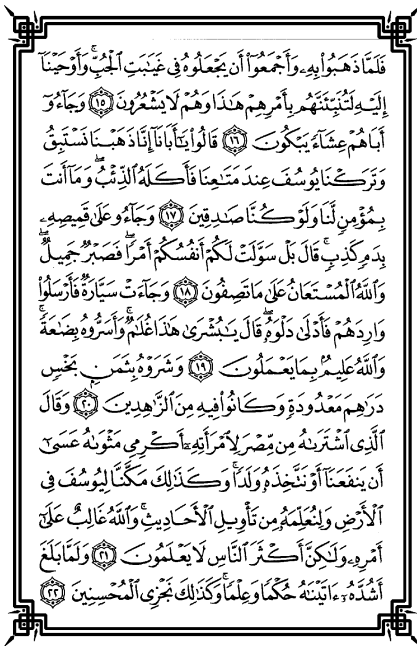 فَلَمَّا ذَهَبُوا۟ بِهِۦ وَأَجْمَعُوٓا۟ أَن يَجْعَلُوهُ فِى غَيَـٰبَتِ ٱلْجُبِّ ۚ وَأَوْحَيْنَآ
إِلَيْهِ لَتُنَبِّئَنَّهُم بِأَمْرِهِمْ هَـٰذَا وَهُمْ لَا يَشْعُرُونَ ١٥ وَجَآءُوٓ
أَبَاهُمْ عِشَآءً يَبْكُونَ ١٦ قَالُوا۟ يَـٰٓأَبَانَآ إِنَّا ذَهَبْنَا نَسْتَبِقُ
وَتَرَكْنَا يُوسُفَ عِندَ مَتَـٰعِنَا فَأَكَلَهُ ٱلذِّئْبُ ۖ وَمَآ أَنتَ
بِمُؤْمِنٍ لَّنَا وَلَوْ كُنَّا صَـٰدِقِينَ ١٧ وَجَآءُو عَلَىٰ قَمِيصِهِۦ
بِدَمٍ كَذِبٍ ۚ قَالَ بَلْ سَوَّلَتْ لَكُمْ أَنفُسُكُمْ أَمْرًا ۖ فَصَبْرٌ جَمِيلٌ ۖ
وَٱللَّهُ ٱلْمُسْتَعَانُ عَلَىٰ مَا تَصِفُونَ ١٨ وَجَآءَتْ سَيَّارَةٌ فَأَرْسَلُوا۟
وَارِدَهُمْ فَأَدْلَىٰ دَلْوَهُۥ ۖ قَالَ يَـٰبُشْرَىٰ هَـٰذَا غُلَـٰمٌ ۚ وَأَسَرُّوهُ بِضَـٰعَةً ۚ
وَٱللَّهُ عَلِيمٌۢ بِمَا يَعْمَلُونَ ١٩ وَشَرَوْهُ بِثَمَنٍۭ بَخْسٍ
دَرَٰهِمَ مَعْدُودَةٍ وَكَانُوا۟ فِيهِ مِنَ ٱلزَّٰهِدِينَ ٢٠ وَقَالَ
ٱلَّذِى ٱشْتَرَىٰهُ مِن مِّصْرَ لِٱمْرَأَتِهِۦٓ أَكْرِمِى مَثْوَىٰهُ عَسَىٰٓ
أَن يَنفَعَنَآ أَوْ نَتَّخِذَهُۥ وَلَدًا ۚ وَكَذَٰلِكَ مَكَّنَّا لِيُوسُفَ فِى
ٱلْأَرْضِ وَلِنُعَلِّمَهُۥ مِن تَأْوِيلِ ٱلْأَحَادِيثِ ۚ وَٱللَّهُ غَالِبٌ عَلَىٰٓ
أَمْرِهِۦ وَلَـٰكِنَّ أَكْثَرَ ٱلنَّاسِ لَا يَعْلَمُونَ ٢١ وَلَمَّا بَلَغَ
أَشُدَّهُۥٓ ءَاتَيْنَـٰهُ حُكْمًا وَعِلْمًا ۚ وَكَذَٰلِكَ نَجْزِى ٱلْمُحْسِنِينَ ٢٢